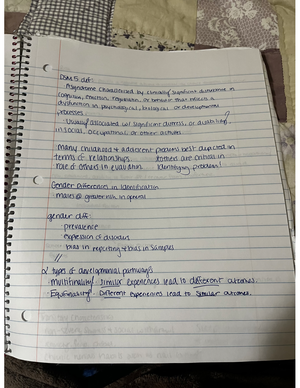 DSM 5 def:
A syndrome characterized by clinically significant disturbance in
cognition, emotion, regulation, or behavior that reflects a
dysfunction in psychological, biological, or developmental
processes.
Usually associated w/ significant distress or disability
in social, occupational, or other activities
Many childhood & adolescent problems best depicted in
terms of relationships. others are critical in
role of others in evaluation identifying problems!
Gender Differences in Identification
males @ greater risk in general
gender diff:
prevalence
expression of disorders
bias in reporting & bias in samples
2 types of developmental pathways
Multifinality: similar experiences lead to different outcomes.
Equifinality: Different experiences lead to similar outcomes.